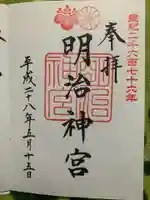 皇紀二千六百七十六年
奉拝
明治神宮
平成二十八年五月十五日